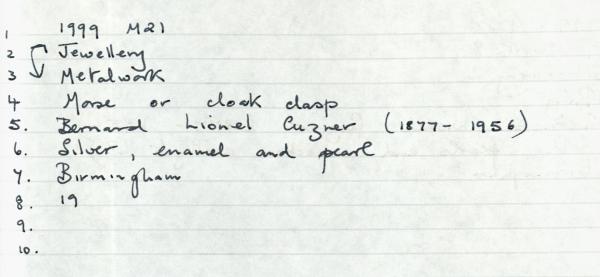 1 1999 M21
2 Jewellery
3 Metalwork
4 Morse or cloak clasp
5. Bernard Lionel Cuzner (1877- 1956)
6. Silver, enamel and pearl
7. Birmingham
8. 19
9.
10.